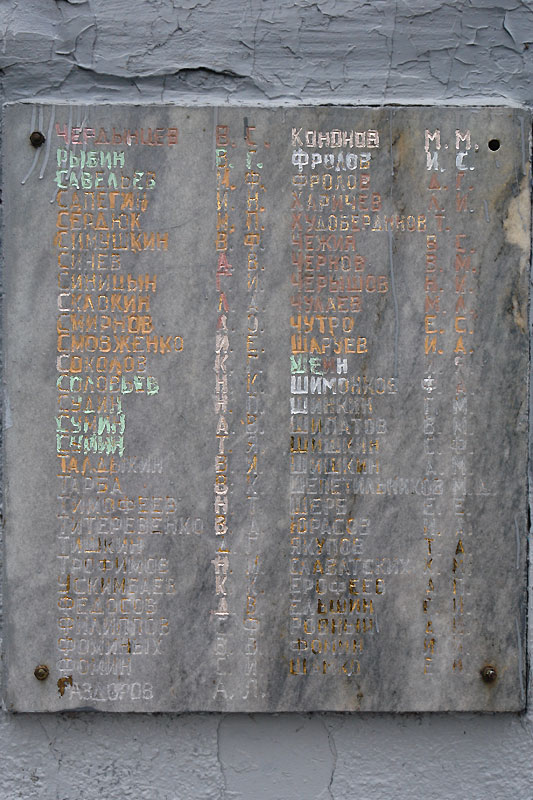 ЧЕРДЫНЦЕВ В. С.
РЫБИН В. Г.
САВЕЛЬЕВ И. Ф.
САПЕГИН И. Н.
СЕРДЮК И. П.
СИМУШКИН В. Ф.
СИНЕВ А. В.
СИНИЦЫН Г. И.
СКЛОКИН А. А.
СМИРНОВ
СМОВЖЕНКО И. Е.
СОКОЛОВ К. Г.
СОЛОВЬЕВ Н. К.
СУДИН Н. П.
СУМИН А. В.
СУМИН Т. Я.
ТАЛДЫКИН В. Я.
ТАРБА В.
ТИМОФЕЕВ Н. Т.
ТИТЕРЕВЕНКО В. А.
ТИШКИН
ТРОФИМОВ Н.
УСКИМБАЕВ К. К.
ФЕДОСОВ А. В.
ФИЛИППОВ
ФОМИНЫХ В. В.
ФОМИН
РАЗДОРОВ А. Л.
КОНОНОВ М. М.
ФРОЛОВ И. С.
ФРОЛОВ
ХАРИЧЕВ
ХУДОБЕРДИКОВ Т.
ЧЕЖИЯ В. С.
ЧЕРНОВ В. М.
ЧЕРЫШОВ Н. И.
ЧУДАЕВ М. А.
ЧУТРО Е. С.
ШАРУЕВ И. А.
ШЕИН
ШИМОНКОВ Ф.
ШИНКИН Г. М.
ШИПАТОВ
ШИШКИН
ШИШКИН
ШЕПЕТИЛЬНИКОВ М.
ШЕРБ Е. Е.
ЮРАСОВ
ЯКУПОВ Т. А.
СЛАВАТСКИХ
ЕРОФЕЕВ А. П.
ЕЛЫШИН
ФОМИН